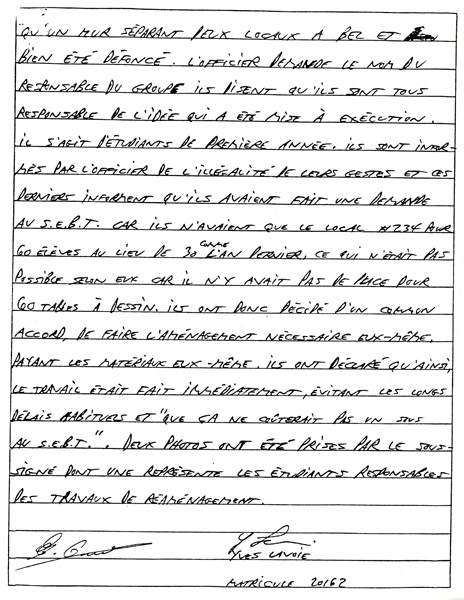 "QU'UN MUR SÉPARANT DEUX LOCAUX A BEL ET
BIEN ÉTÉ DÉFONCÉ. L'OFFICIER DEMANDE LE NOM DU
RESPONSABLE DU GROUPE ILS DISENT QU'ILS SONT TOUS
RESPONSABLE DE L'IDÉE QUI A ÉTÉ MISE À EXÉCUTION.
IL S'AGIT D'ÉTUDIANTS DE PREMIÈRE ANNÉE. ILS SONT INFOR-
MÉS PAR L'OFFICIER DE L'ILLÉGALITÉ DE LEURS GESTES ET CES
DERNIERS INFORMENT QU'ILS AVAIENT FAIT UNE DEMANDE
AU S.E.B.T. CAR ILS N'AVAIENT QUE LE LOCAL #234 POUR
60 ÉLÈVES AU LIEU DE 30 COMME L'AN DERNIER, CE QUI N'ÉTAIT PAS
POSSIBLE SELON EUX CAR IL N'Y AVAIT PAS DE PLACE POUR
60 TABLES À DESSIN. ILS ONT DONC DÉCIDÉ D'UN COMMUN
ACCORD, DE FAIRE L'AMÉNAGEMENT NÉCESSAIRE EUX-MÊME,
PAYANT LES MATÉRIAUX EUX-MÊME. ILS ONT DÉCLARÉ QU'AINSI,
LE TRAVAIL ÉTAIT FAIT IMMÉDIATEMENT, ÉVITANT LES LONGS
DÉLAIS HABITUELS ET "QUE ÇA NE COÛTERAIT PAS UN SOUS
AU S.E.B.T.". DEUX PHOTOS ONT ÉTÉ PRISES PAR LE SOUS-
SIGNÉ DONT UNE REPRÉSENTE LES ÉTUDIANTS RESPONSABLES
DES TRAVAUX DE RÉAMÉNAGEMENT.
YVES LAVOIE
MATRICULE 20162